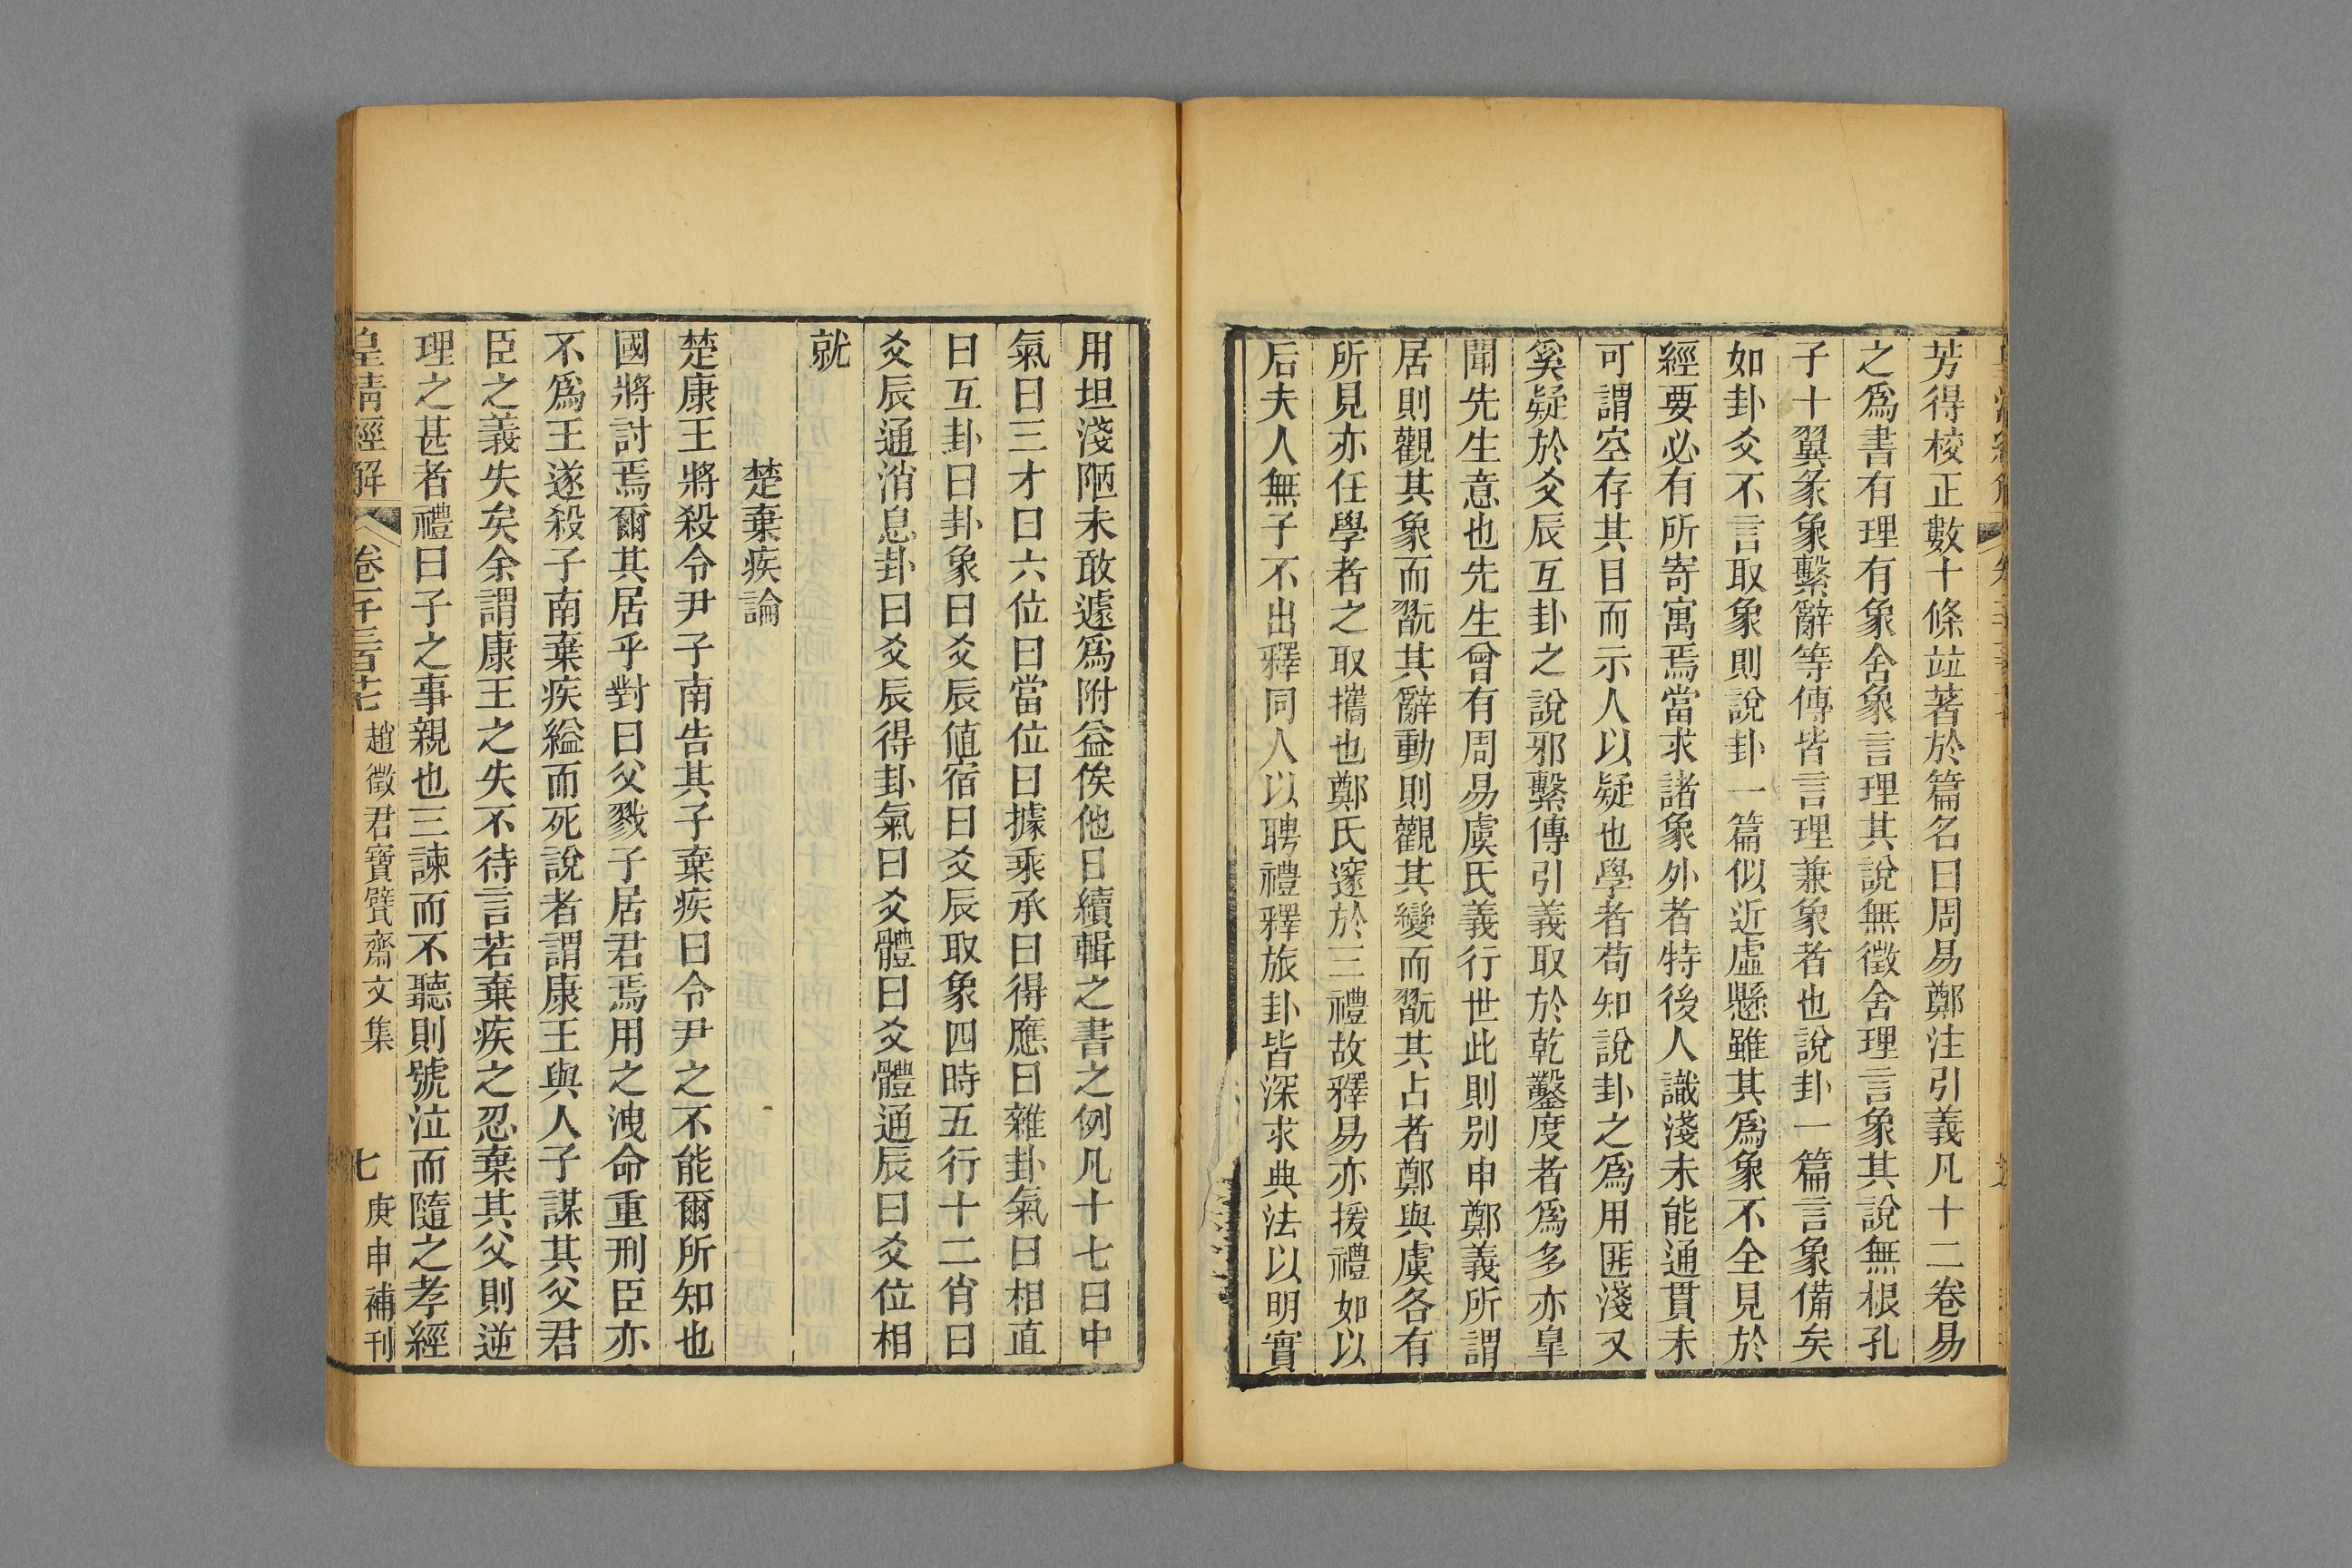 芳得校正數十條竝著於篇名曰周易鄭注引義凡十二卷易
之爲書有理有象舍象言理其說無徵舍理言象其說無根孔
子十翼彖象繫辭等傳皆言理兼象者也說卦一篇言象備矣
如卦爻不言取象則說卦一篇似近虛懸雖其爲象不全見於
經要必有所寄寓焉當求諸象外者特後人識淺未能通貫未
可謂空存其目而示人以疑也學者苟知說卦之爲用匪淺又
奚疑於爻辰互卦之說邪繫傳引義取於乾鑿度者爲多亦臯
聞先生意也先生曾有周易虞氏義行世此則別申鄭義所謂
居則觀其象而翫其辭動則觀其變而翫其占者鄭與虞各有
所見亦任學者之取攜也鄭氏邃於三禮故釋易亦援禮如以
后夫人無子不出釋同人以聘禮釋旅卦皆深求典法以明實
用坦淺陋未敢遽爲附益俟他日續輯之書之例凡十七曰中
氣曰三才曰六位曰當位曰據乘承曰得應曰雜卦氣曰相直
曰互卦曰卦象曰爻辰値宿曰爻辰取象四時五行十二肖曰
爻辰通消息卦曰爻辰得卦氣曰爻體曰爻體通辰曰爻位相
就
楚棄疾論
楚康王將殺令尹子南告其子棄疾曰令尹之不能爾所知也
國將討焉爾其居乎對曰父戮子居君焉用之洩命重刑臣亦
不爲王遂殺子南棄疾縊而死說者謂康王與人子謀其父君
臣之義失矣余謂康王之失不待言若棄疾之忍棄其父則逆
理之甚者禮曰子之事親也三諫而不聽則號泣而隨之孝經
皇清經解 卷一千三百七 趙徵君寶甓齋文集 七 庚申補刊